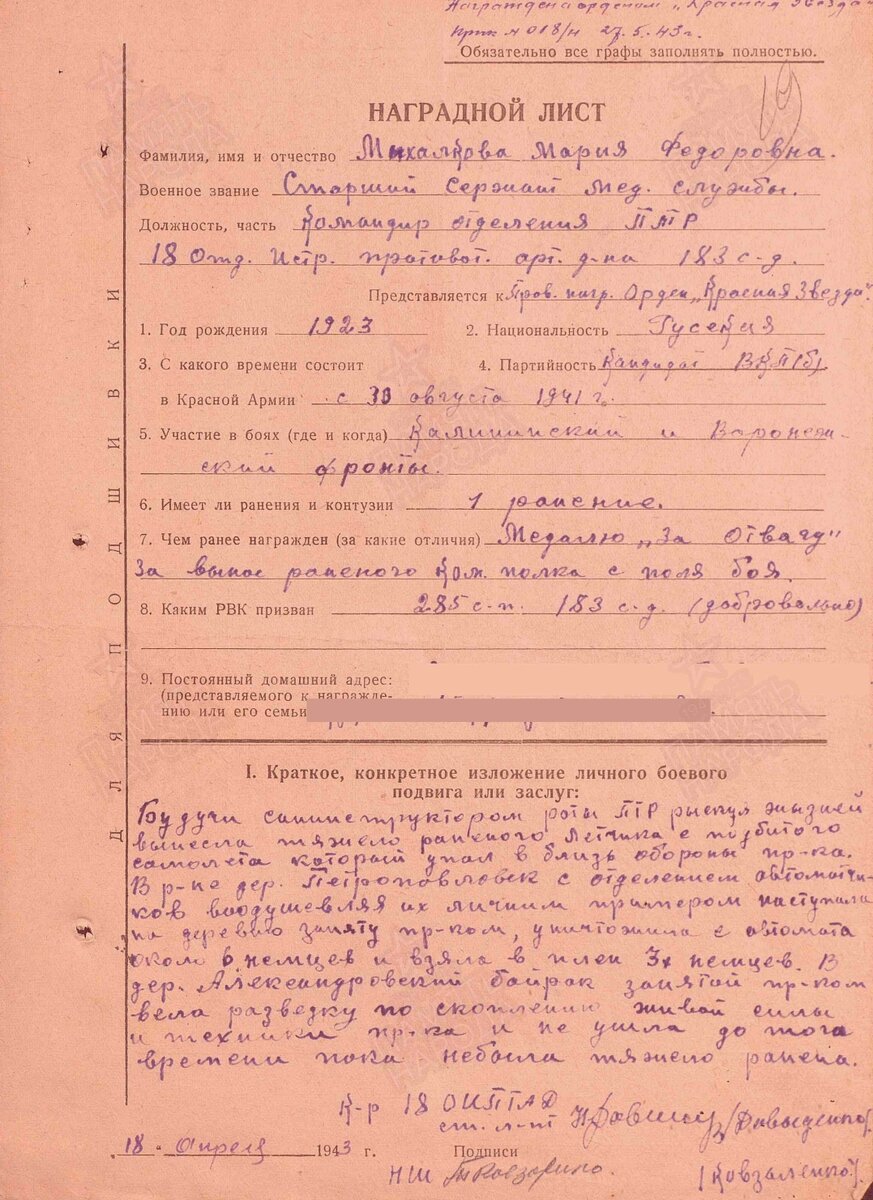 Награждена орденом "Красная Звезда"
прик N 018/н 27.5.43 г.
Обязательно все графы заполнять полностью.
19
НАГРАДНОЙ ЛИСТ
Фамилия, имя и отчество Михалкова Мария Федоровна.
Военное звание Старший Сержант мед. службы.
Должность, часть Командир отделения ПТР
18 Отд. Истр. противот. арт. д-на 183 с-д.
Представляется к Прав. нагр. Орден „Красная Звезда".
1. Год рождения 1923 2. Национальность Русская
3. С какого времени состоит 4. Партийность Кандидат ВКП(б).
в Красной Армии с 30 августа 1941 г.
5. Участие в боях (где и когда) Калининский и Воронеж-
ский фронты.
6. Имеет ли ранения и контузии 1 ранение.
7. Чем ранее награжден (за какие отличия) Медалю „За Отвагу"
За вынос раненого Ком. полка с поля боя.
8. Каким РВК призван 285 с-п. 183 с-д. (добровольно)
9. Постоянный домашний адрес:
(представляемого к награжде-
нию или его семьи
ДЛЯ ПОДШИВКИ
I. Краткое, конкретное изложение личного боевого
подвига или заслуг:
Будучи санинструктором роты ПТР рискуя жизней
вынесла тяжело раненого Летчика с подбитого
самолета который упал в близь обороны пр-ка.
В р-не дер. Петроповловск с отделением автоматчи-
ков воодушевляя их личним примером наступала
на деревню заняту пр-ком, уничтожила с автомата
около 6 немцев и взяла в плен 3х немцев. В
дер. Александровский байрак занятой пр-ком
вела разведку по скоплению живой силы
и техники пр-ка и не ушла до того
времени пока небыла тяжело ранена.
К-р 18 ОИПТАД
ст. л-нт /Давыденко/
18 апреля 1943 г. Подписи
НШ /Ковзаленко/